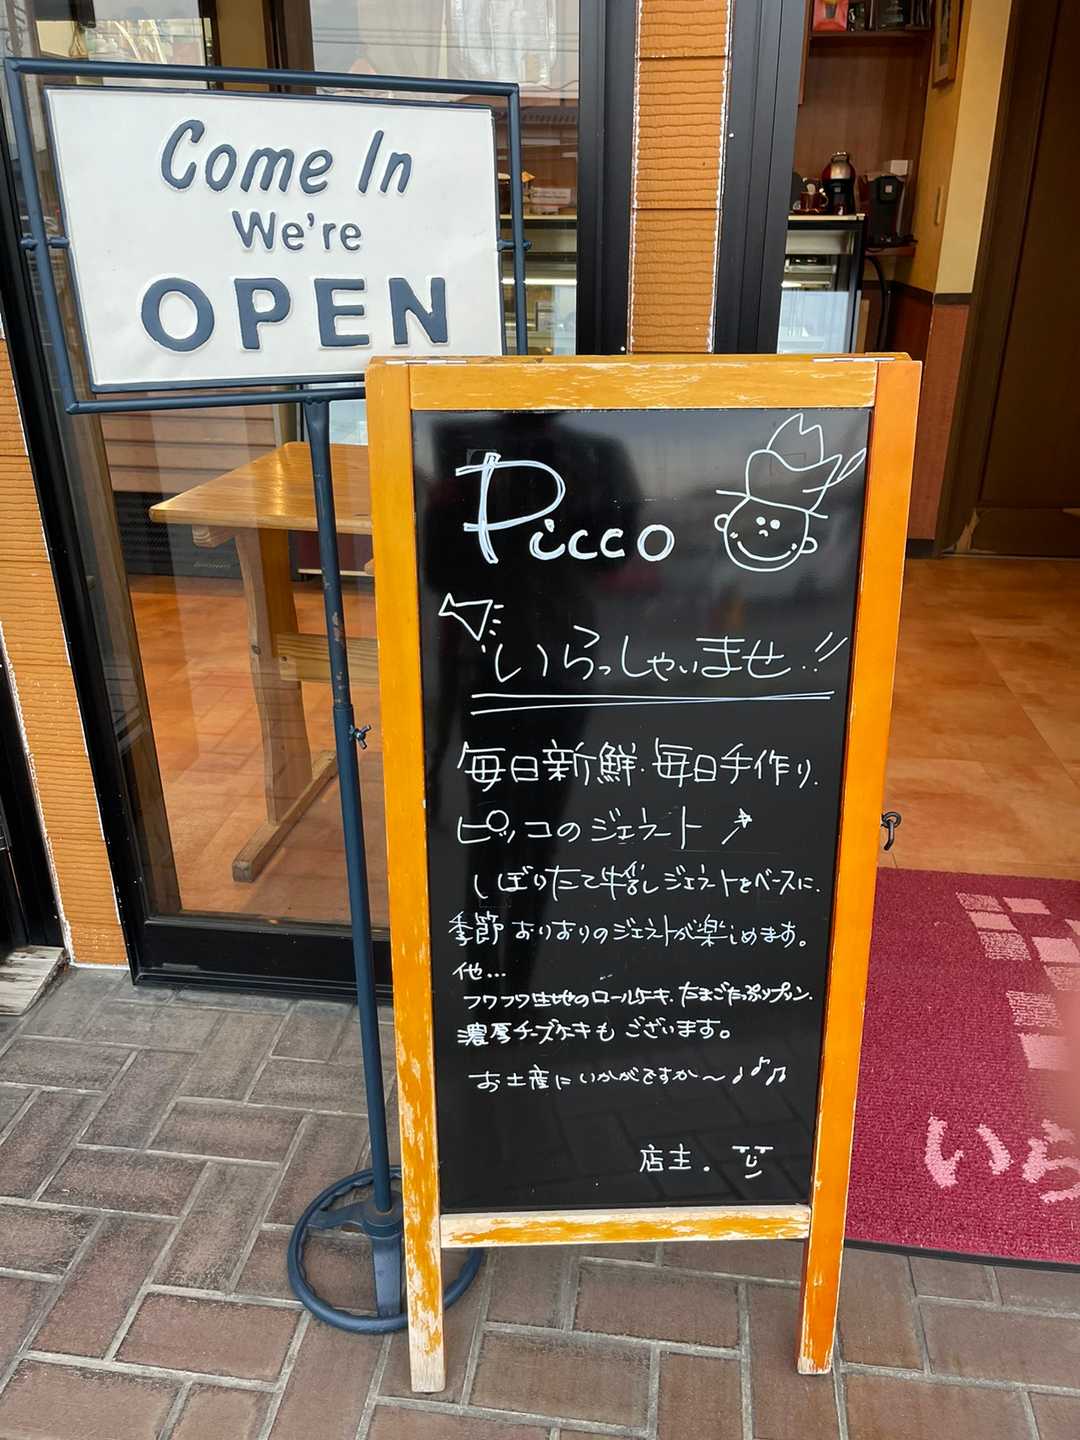 Come In
We're
OPEN
Picco
いらっしゃいませ!!
毎日新鮮.毎日手作り.
ピッコのジェラート
しぼりたて牛乳ジェラートをベースに.
季節おりおりのジェラートが楽しめます。
他...
フワフワ生地のロールケーキ.たまごたっぷりプリン.
濃厚チーズケーキも ございます。
お土産にいかがですか〜♩♪♫
店主.
いら